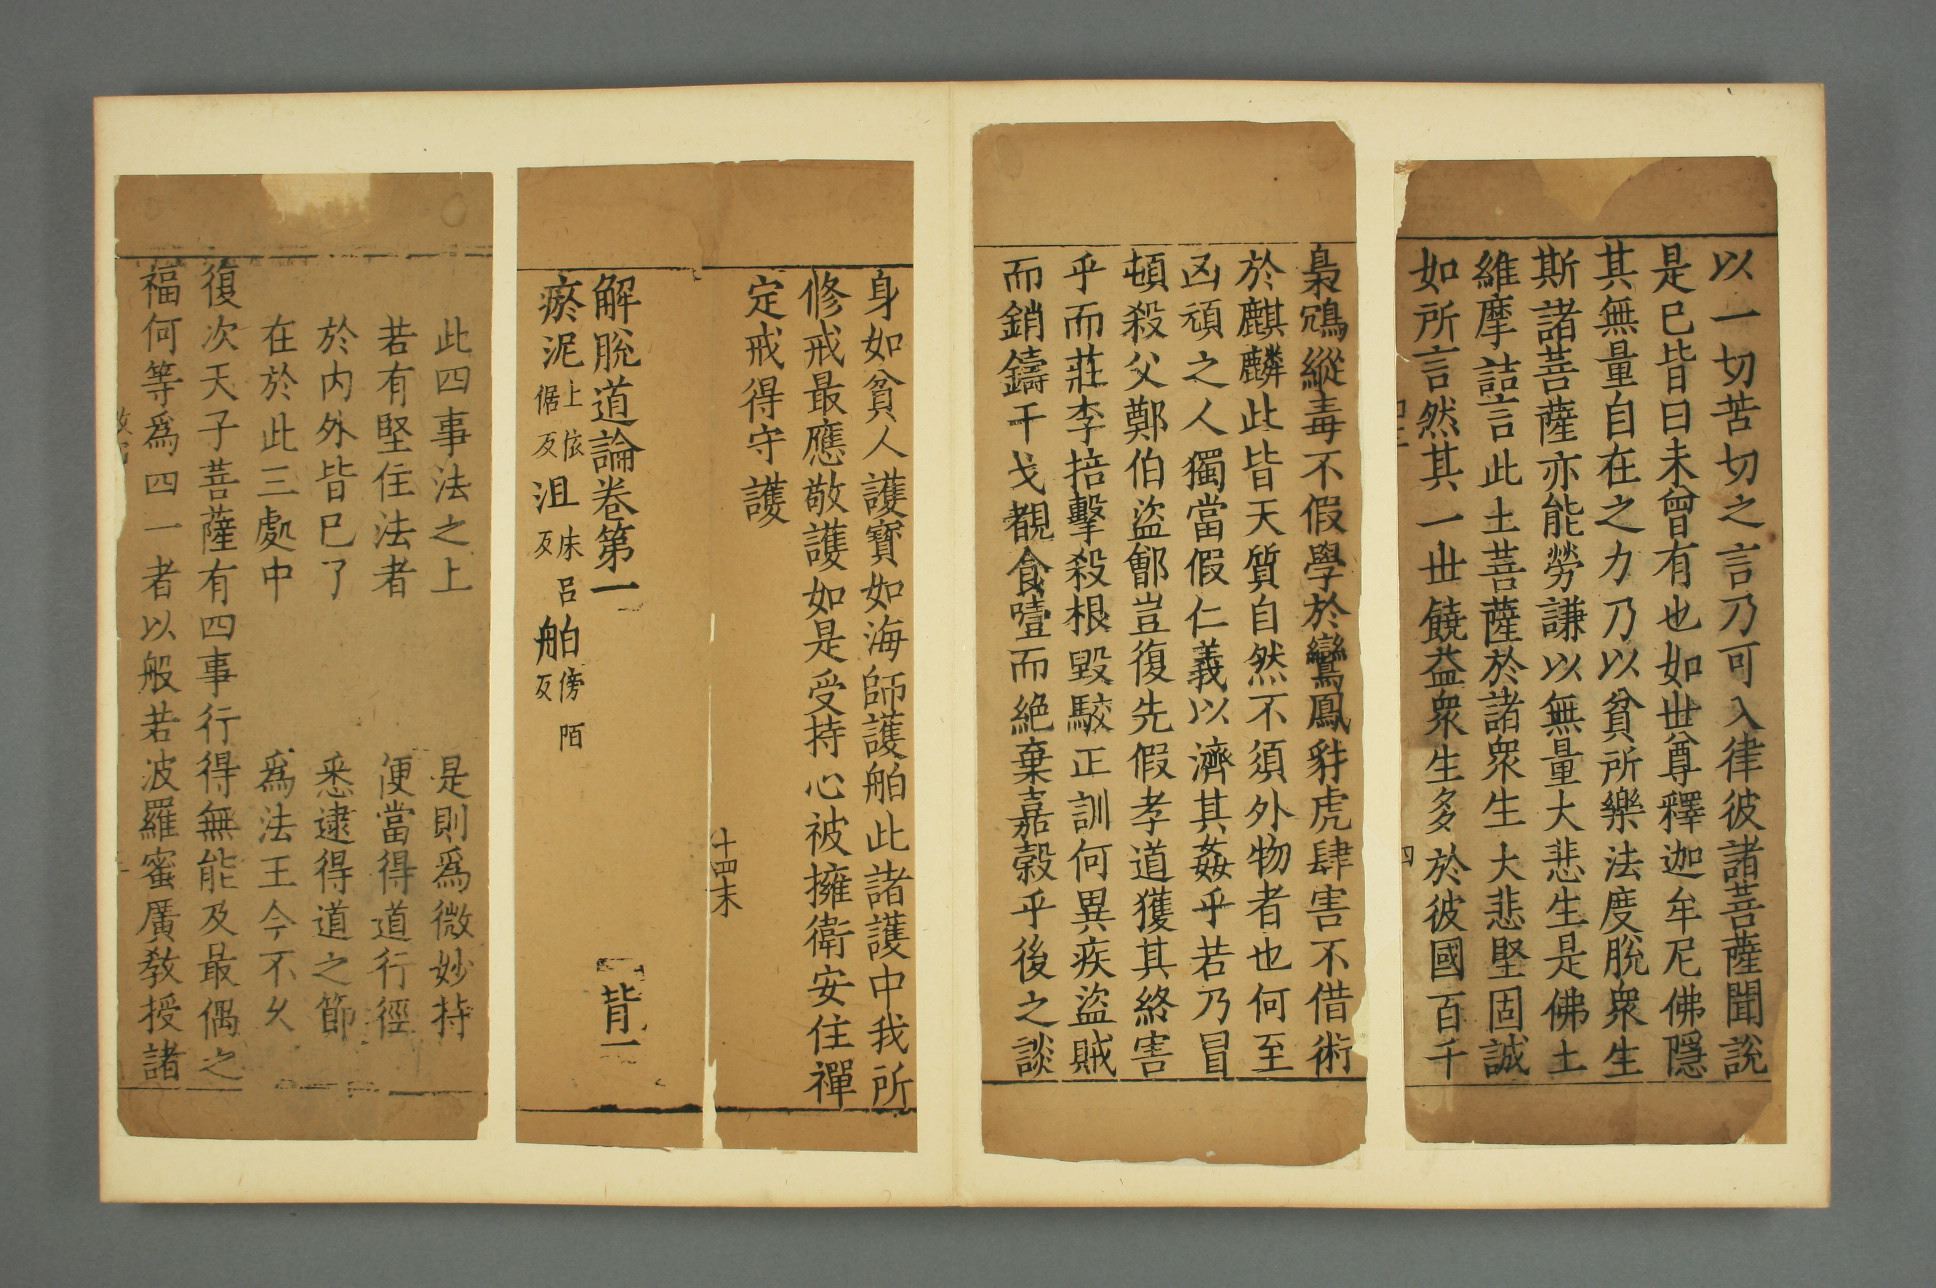 以一切苦切之言乃可入律彼諸菩薩聞說
是已皆曰未曾有也如世尊釋迦牟尼佛隱
其無量自在之力乃以貧所樂法度脫衆生
斯諸菩薩亦能勞謙以無量大悲生是佛土
維摩詰言此土菩薩於諸衆生大悲堅固誠
如所言然其一世饒益衆生多於彼國百千
四
梟鴆縱毒不假學於鸞鳳豺虎肆害不借術
於麒麟此皆天質自然不須外物者也何至
凶頑之人獨當假仁義以濟其姦乎若乃冒
頓殺父鄭伯盜鄶豈復先假孝道獲其終害
乎而莊李掊擊殺根毀駮正訓何異疾盜賊
而銷鑄干戈覩食噎而絕棄嘉穀乎後之談
身如貧人護寶如海師護舶此諸護中我所
修戒最應敬護如是受持心被擁衛安住禪
定戒得守護
十四末
解脫道論卷第一
背一
瘀泥上依倨反沮床呂反舶傍陌反
此四事法之上 是則爲微妙持
若有堅住法者 便當得道行徑
於內外皆已了 悉逮得道之節
在於此三處中 爲法王今不久
復次天子菩薩有四事行得無能及最偶之
福何等爲四一者以般若波羅蜜廣教授諸